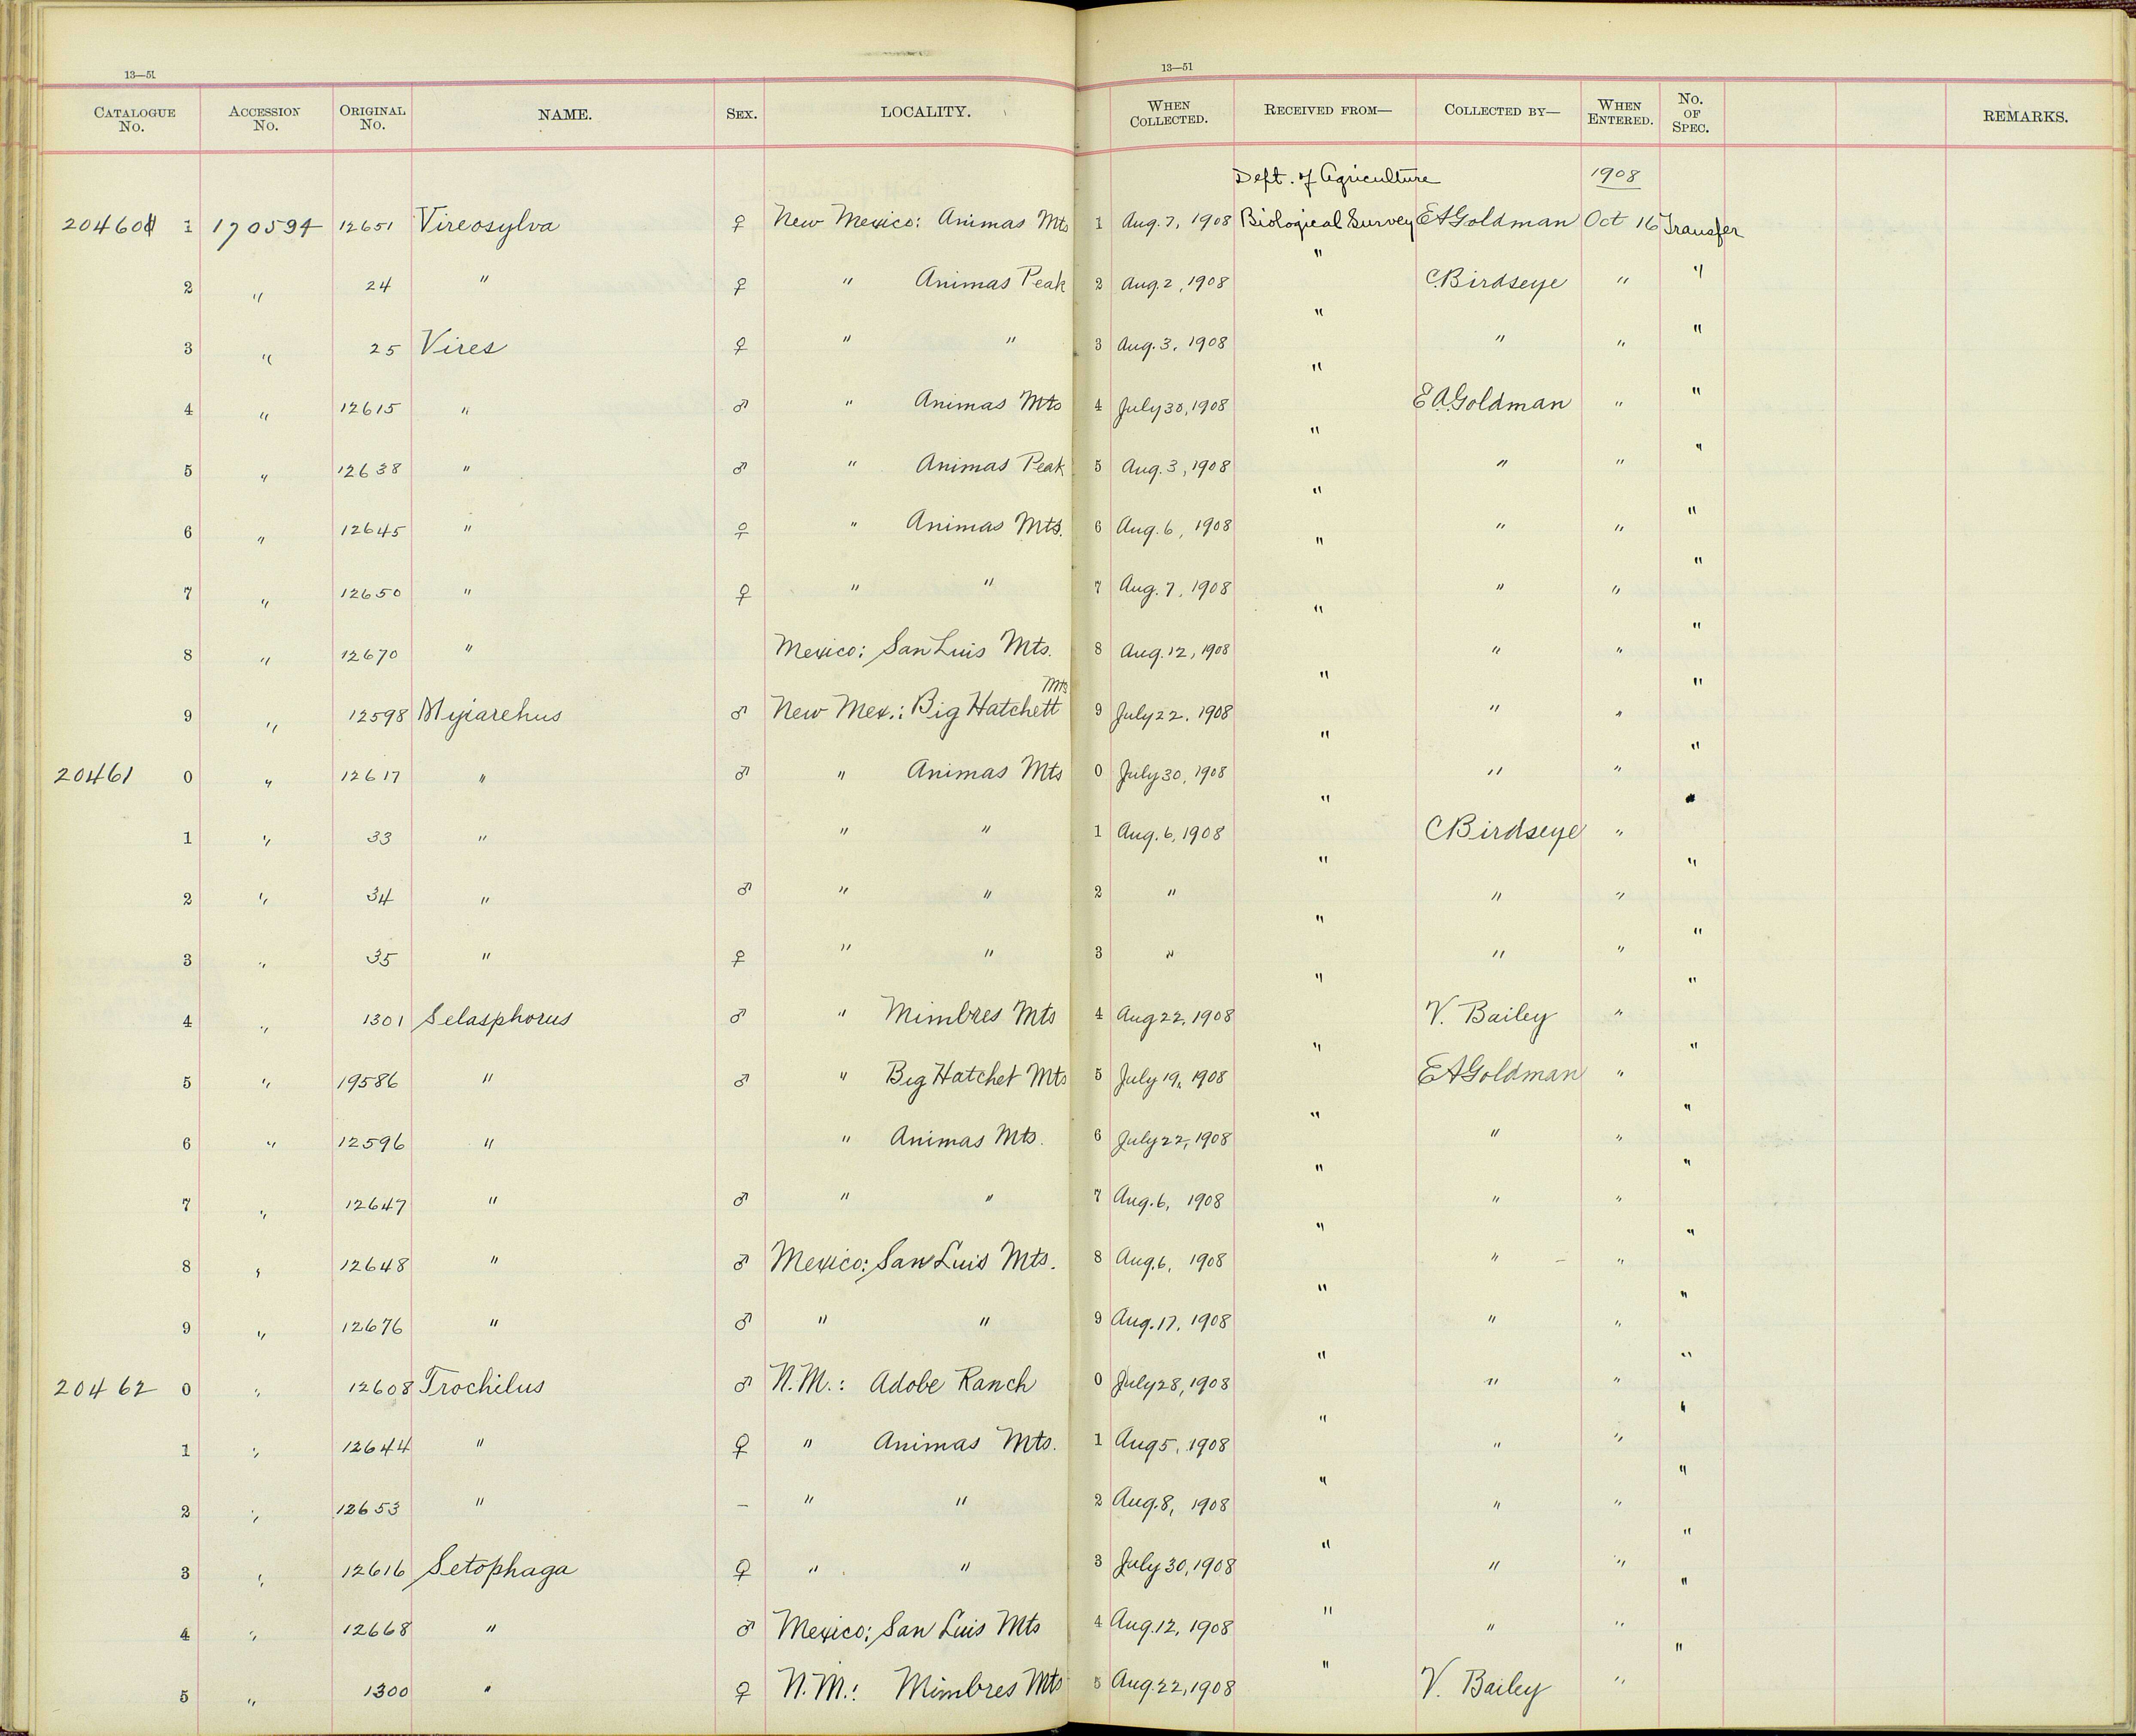 13—51 13—51
CATALOGUE No. ACCESSION No. ORIGINAL No. NAME. SEX. LOCALITY. WHEN COLLECTED. RECEIVED FROM— COLLECTED BY— WHEN ENTERED. No. OF SPEC. REMARKS.
Dept. of Agriculture 1908
20460 1 170594 12651 Vireosylva ♀ New Mexico: Animas Mts 1 Aug. 7, 1908 Biological Survey EAGoldman Oct 16 Transfer
2 " 24 " ♀ " Animas Peak 2 Aug. 2, 1908 " C.Birdseye " "
3 " 25 Vires ♀ " " 3 Aug. 3, 1908 " " " "
4 " 12615 " ♂ " Animas Mts 4 July 30, 1908 " EAGoldman " "
5 " 12638 " ♂ " Animas Peak 5 Aug. 3, 1908 " " " "
6 " 12645 " ♀ " Animas Mts. 6 Aug. 6, 1908 " " " "
7 " 12650 " ♀ " " 7 Aug. 7, 1908 " " " "
8 " 12670 " Mexico: San Luis Mts. 8 Aug. 12, 1908 " " " "
9 " 12598 Myiarchus ♂ New Mex.: Big Hatchett Mts 9 July 22, 1908 " " " "
20461 0 " 12617 " ♂ " Animas Mts 0 July 30, 1908 " " " "
1 " 33 " " " 1 Aug. 6, 1908 " CBirdseye " "
2 " 34 " ♂ " " 2 " " " " "
3 " 35 " ♀ " " 3 " " " " "
4 " 1301 Selasphorus ♂ " Mimbres Mts 4 Aug 22, 1908 " V. Bailey " "
5 " 19586 " ♂ " Big Hatchet Mts 5 July 19, 1908 " EAGoldman " "
6 " 12596 " " Animas Mts. 6 July 22, 1908 " " " "
7 " 12647 " ♂ " " 7 Aug. 6, 1908 " " " "
8 " 12648 " ♂ Mexico: San Luis Mts. 8 Aug. 6, 1908 " " " "
9 " 12676 " ♂ " " 9 Aug. 17, 1908 " " " "
20462 0 " 12608 Trochilus ♂ N.M.: Adobe Ranch 0 July 28, 1908 " " " "
1 " 12644 " ♀ " Animas Mts. 1 Aug 5, 1908 " " " "
2 " 12653 " — " " 2 Aug. 8, 1908 " " " "
3 " 12616 Setophaga ♀ " " 3 July 30, 1908 " " " "
4 " 12668 " ♂ Mexico: San Luis Mts 4 Aug. 12, 1908 " " " "
5 " 1300 " ♀ N.M.: Mimbres Mts 5 Aug. 22, 1908 " V. Bailey "